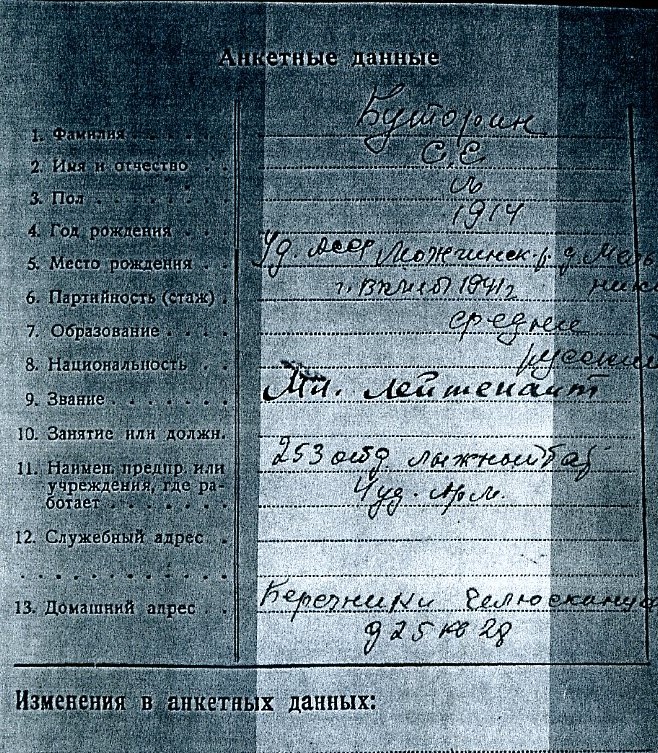 Анкетные данные
1. Фамилия . . . . . Буторин
2. Имя и отчество . . С. Е
3. Пол . . . . . . . . м
4. Год рождения . . . 1914
5. Место рождения . . Уд. АССР Можгинск. р. д.
6. Партийность (стаж) . 1941 г
7. Образование . . . . средне
8. Национальность . . русский
9. Звание . . . . . . . Мл. лейтенант
10. Занятие или должн.
11. Наимен. предпр. или 253 отд. лыжный бат
учреждения, где ра- Чуд. Арм.
ботает . . . . . . .
12. Служебный адрес . .
13. Домашний адрес . . Березники Челюскинцев
д 25 кв 28
Изменения в анкетных данных: